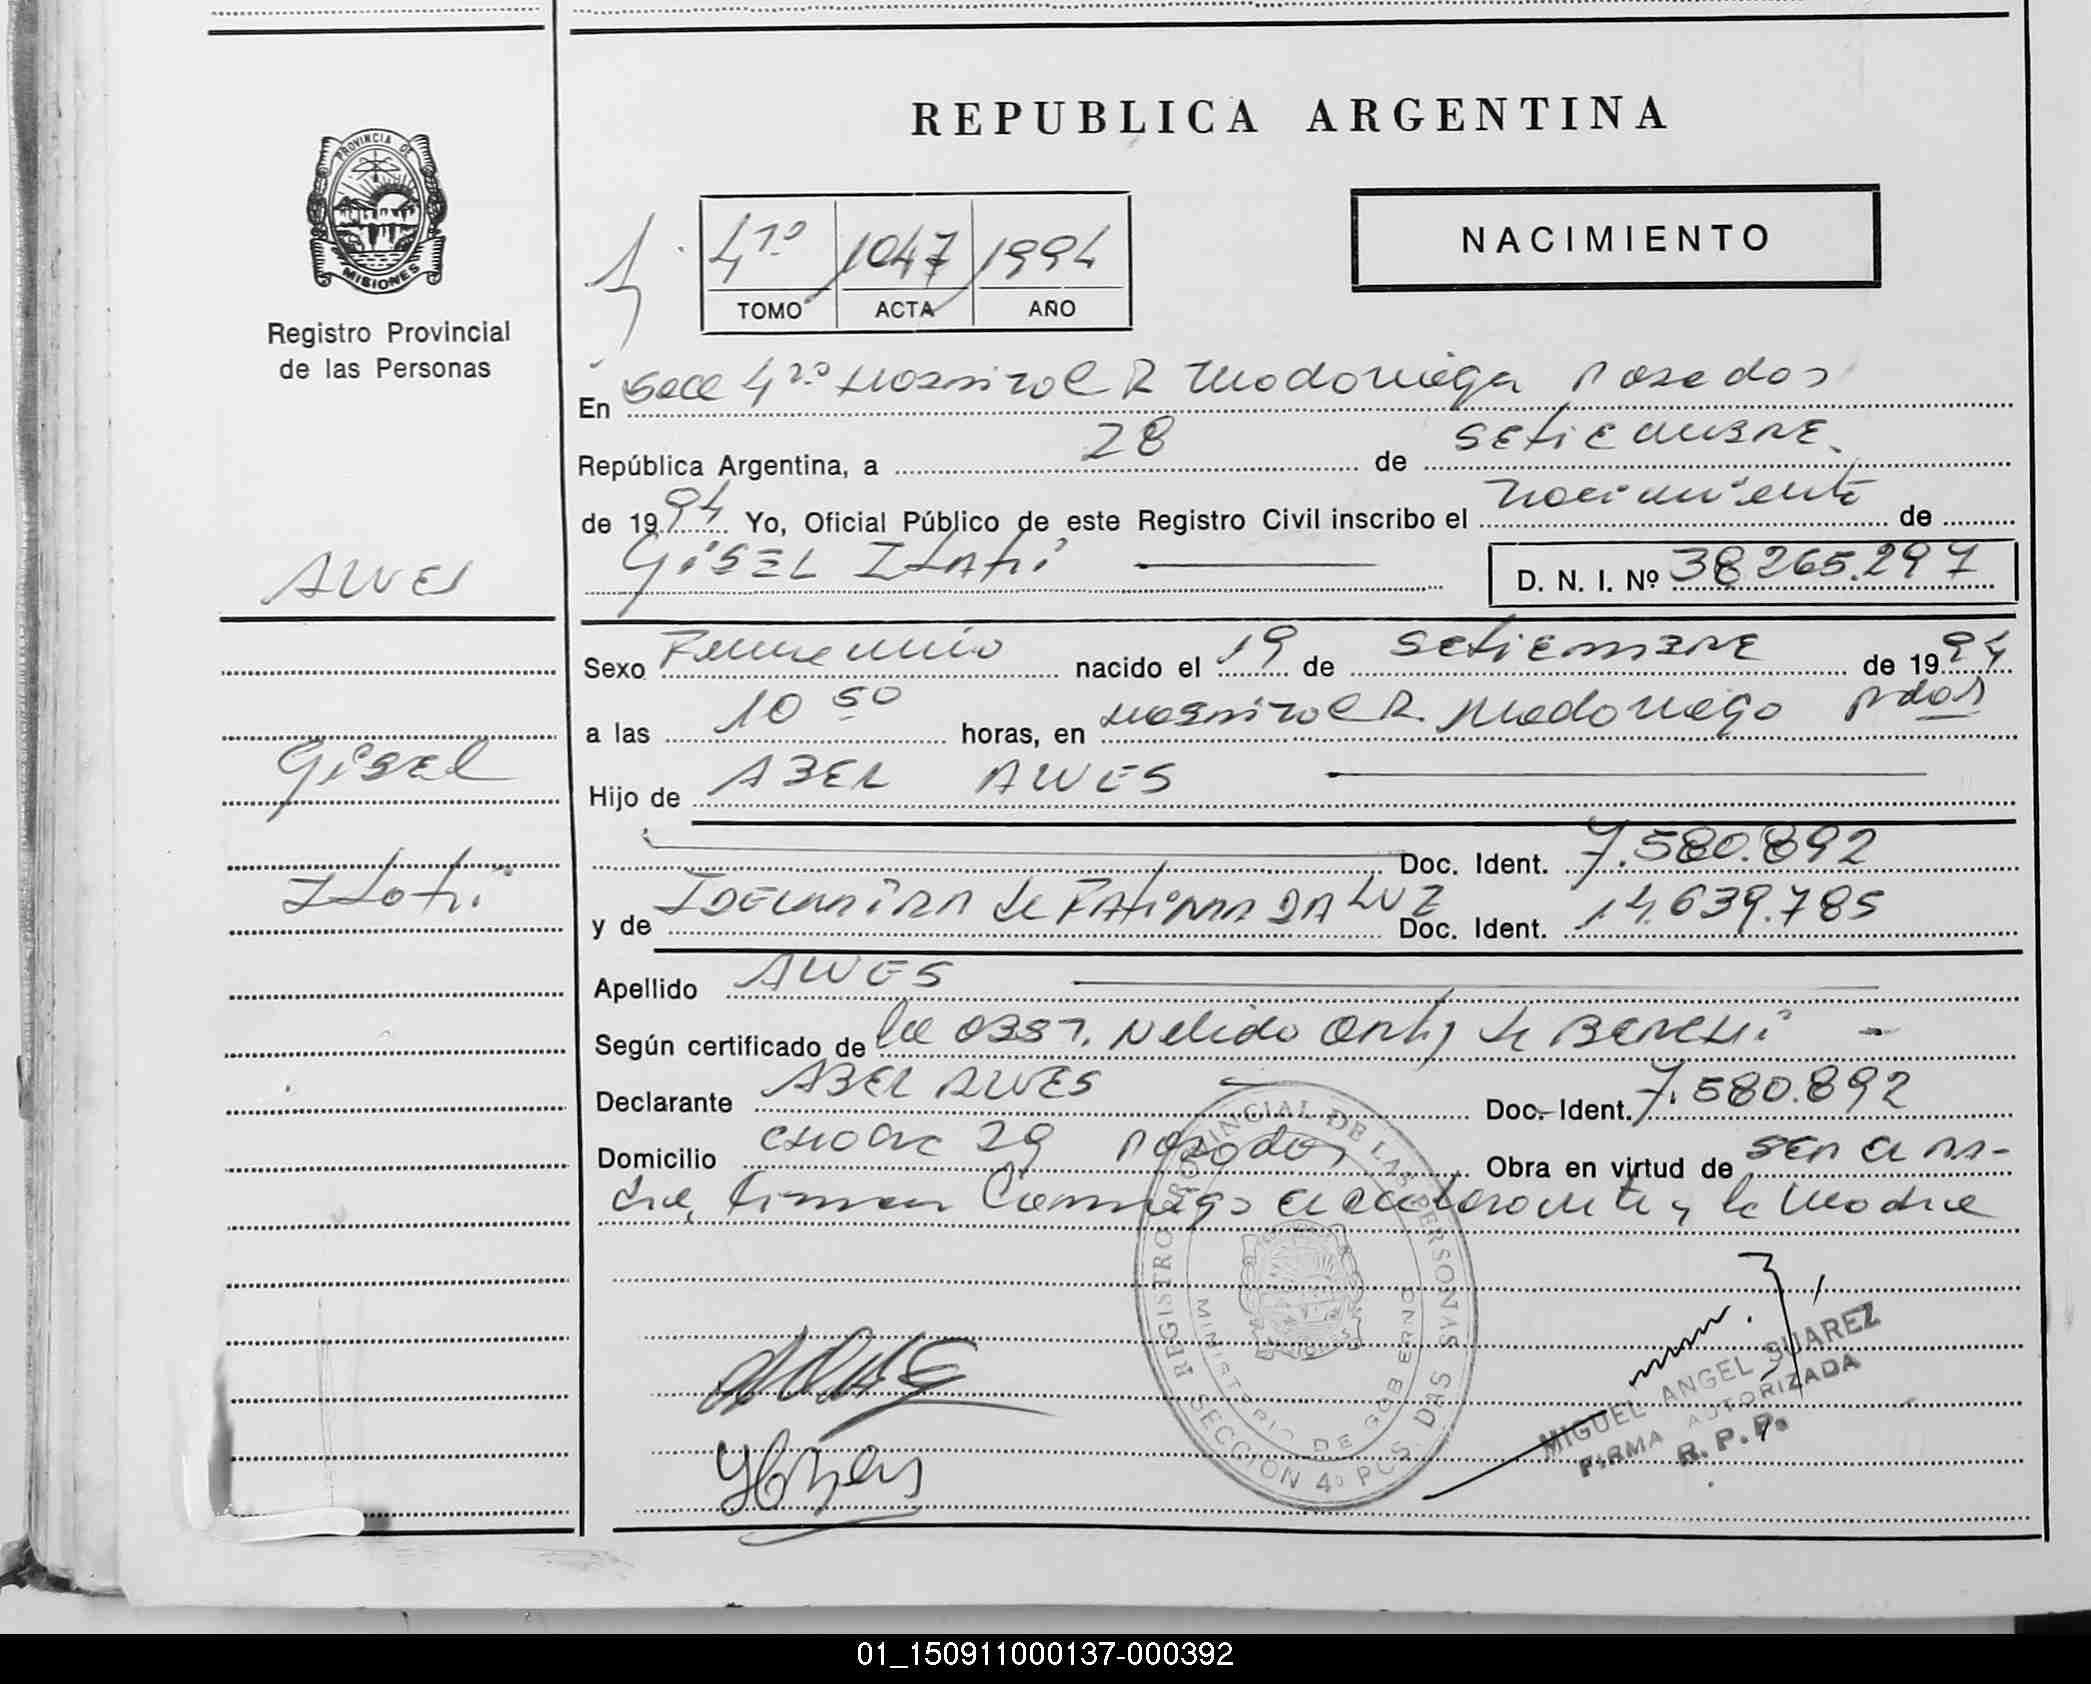 REPUBLICA ARGENTINA
PROVINCIA DE
MISIONES
Registro Provincial
de las Personas
NACIMIENTO
4to 1047 1994
TOMO ACTA AÑO
En Secc 4ta Hospital R Madariaga Posadas
República Argentina, a 28 de setiembre
de 1994 Yo, Oficial Público de este Registro Civil inscribo el nacimiento de
Gisel Itati D. N. I. Nº 38.265.297
ALVES
Gisel
Itati
Sexo Femenino nacido el 19 de setiembre de 1994
a las 10 50 horas, en Hospital R. Madariaga Pdas
Hijo de ABEL ALVES
Doc. Ident. 7.580.892
y de IDELMIRA de FATIMA DA LUZ Doc. Ident. 14.639.785
Apellido ALVES
Según certificado de la OBST. Nelida Ortiz de
Declarante ABEL ALVES Doc. Ident. 7.580.892
Domicilio 29 Posadas Obra en virtud de ser el pa-
dre, firman Conmigo el declarante y la Madre
REGISTRO PROVINCIAL DE LAS PERSONAS
MINISTERIO DE GOBIERNO
SECCION 4a POSADAS
MIGUEL ANGEL SUAREZ
FIRMA AUTORIZADA
R. P. P.
01_150911000137-000392